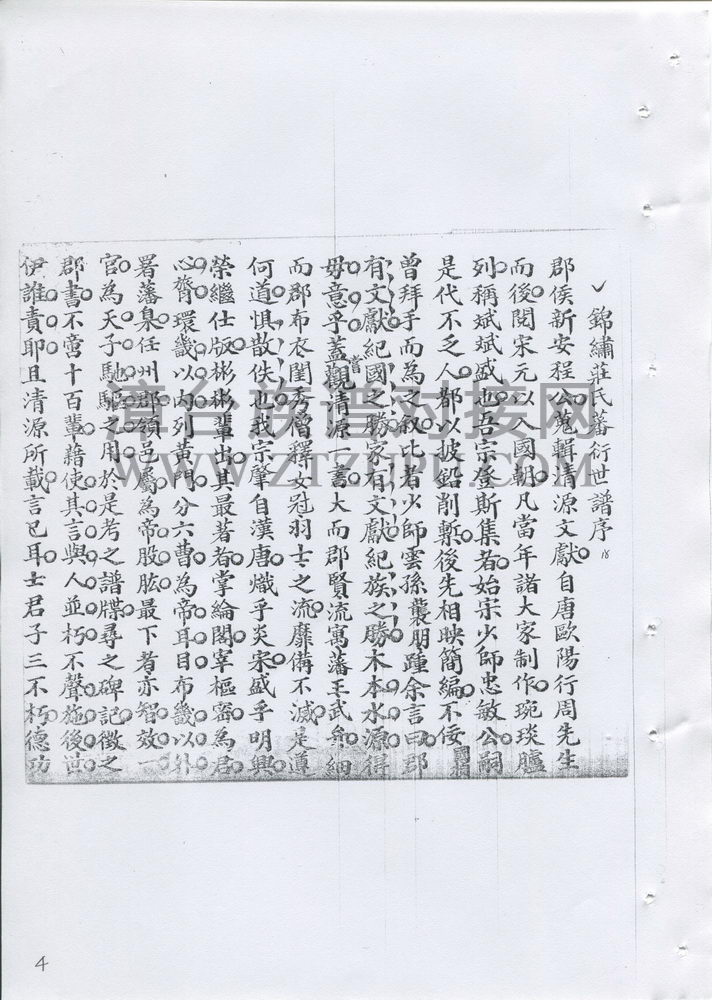 錦繡莊氏蕃衍世譜序
郡侯新安程公蒐輯清源文獻自唐歐陽行周先生
而後閱宋元以入國朝凡當年諸大家制作琬琰臚
列稱斌斌盛也吾宗登斯集者始宗少師忠敏公嗣
是代不乏人鄙以披鉛削槧後先相映簡編不佞
曾拜手而為之叙比者少師雲孫龔朋踵余言曰郡
有文獻紀國之勝家有文獻紀族之勝木本水源得
毋意乎蓋嘗觀清源一書大而郡賢流寓藩王武弁細
而郡布衣閨秀僧釋女冠羽士之流靡備不滅是遵
何道惧散佚也我宗肇自漢唐熾乎炎宋盛乎明興
榮繼仕版彬彬輩出其最著者掌綸閣宰樞密為君
心膂環畿以内列黃門分六曹為帝耳目布畿以外
署藩臬任州郡領邑屬為帝股肱最下者亦智效一
官為天子馳驅之用於是考之譜牒尋之碑記徵之
郡書不啻十百輩藉使其言與人並朽不聲施後世
伊誰責耶且清源所載言已耳士君子三不朽德功
漳台族谱对接网
WWW.ZTZUPU.COM
4